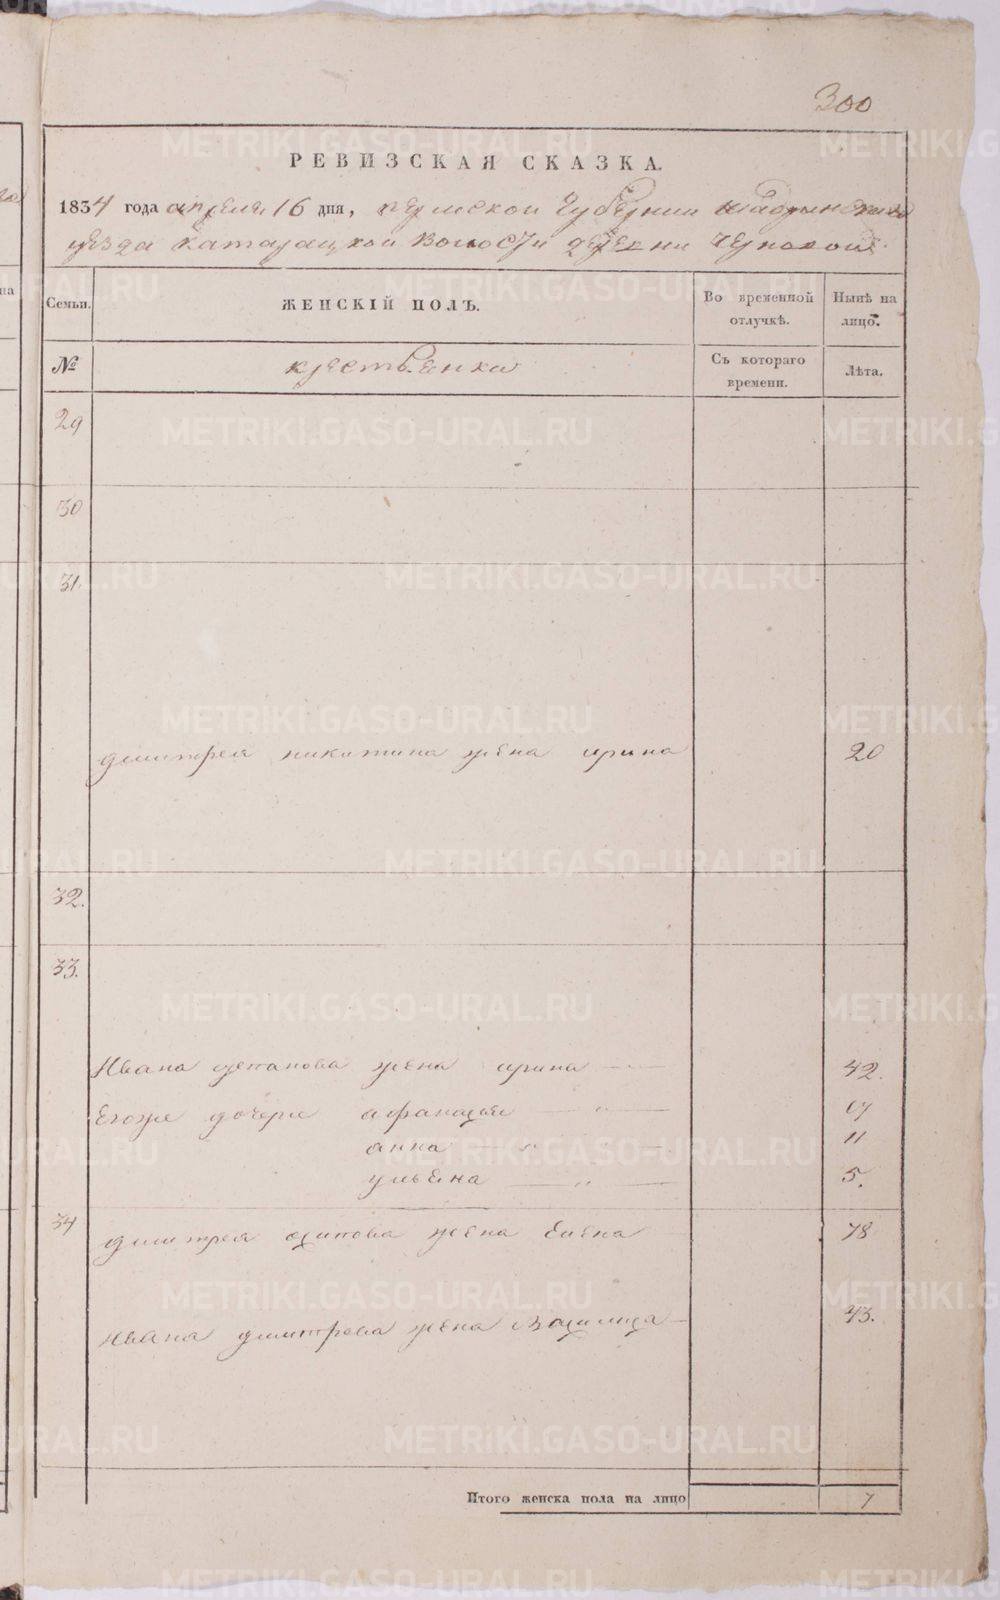 300
РЕВИЗСКАЯ СКАЗКА.
1834 года апреля 16 дня, пермской губернии шадринскаго
уезда катарацкой волости деревни черновой
Семьи. ЖЕНСКІЙ ПОЛЪ. Во временной отлучкѣ. Нынѣ на лицо.
№ крестьенки Съ котораго времени. Лѣта.
29
30
31.
дмитрея никитина жена ирина 20
32.
33.
Ивана степанова жена ирина 42.
Егоже дочери афанасья 17
анна 11
ульена 5.
34 дмитрея осипова жена Елена 78
Ивана дмитрева жена Василиса 43.
Итого женска пола на лицо 7
METRIKI.GASO-URAL.RU